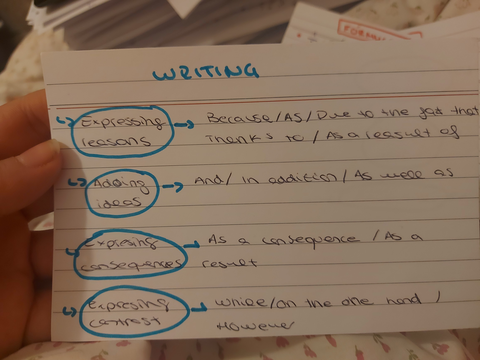 WRITING
Expressing → Because/As/Due to the fact that
reasons Thanks to / As a leasult of
Adding → And/ In addition / As well as
ideas
Expresing → As a consequence / As a
consequences result
Expresing → While/on the one hand /
contrast However